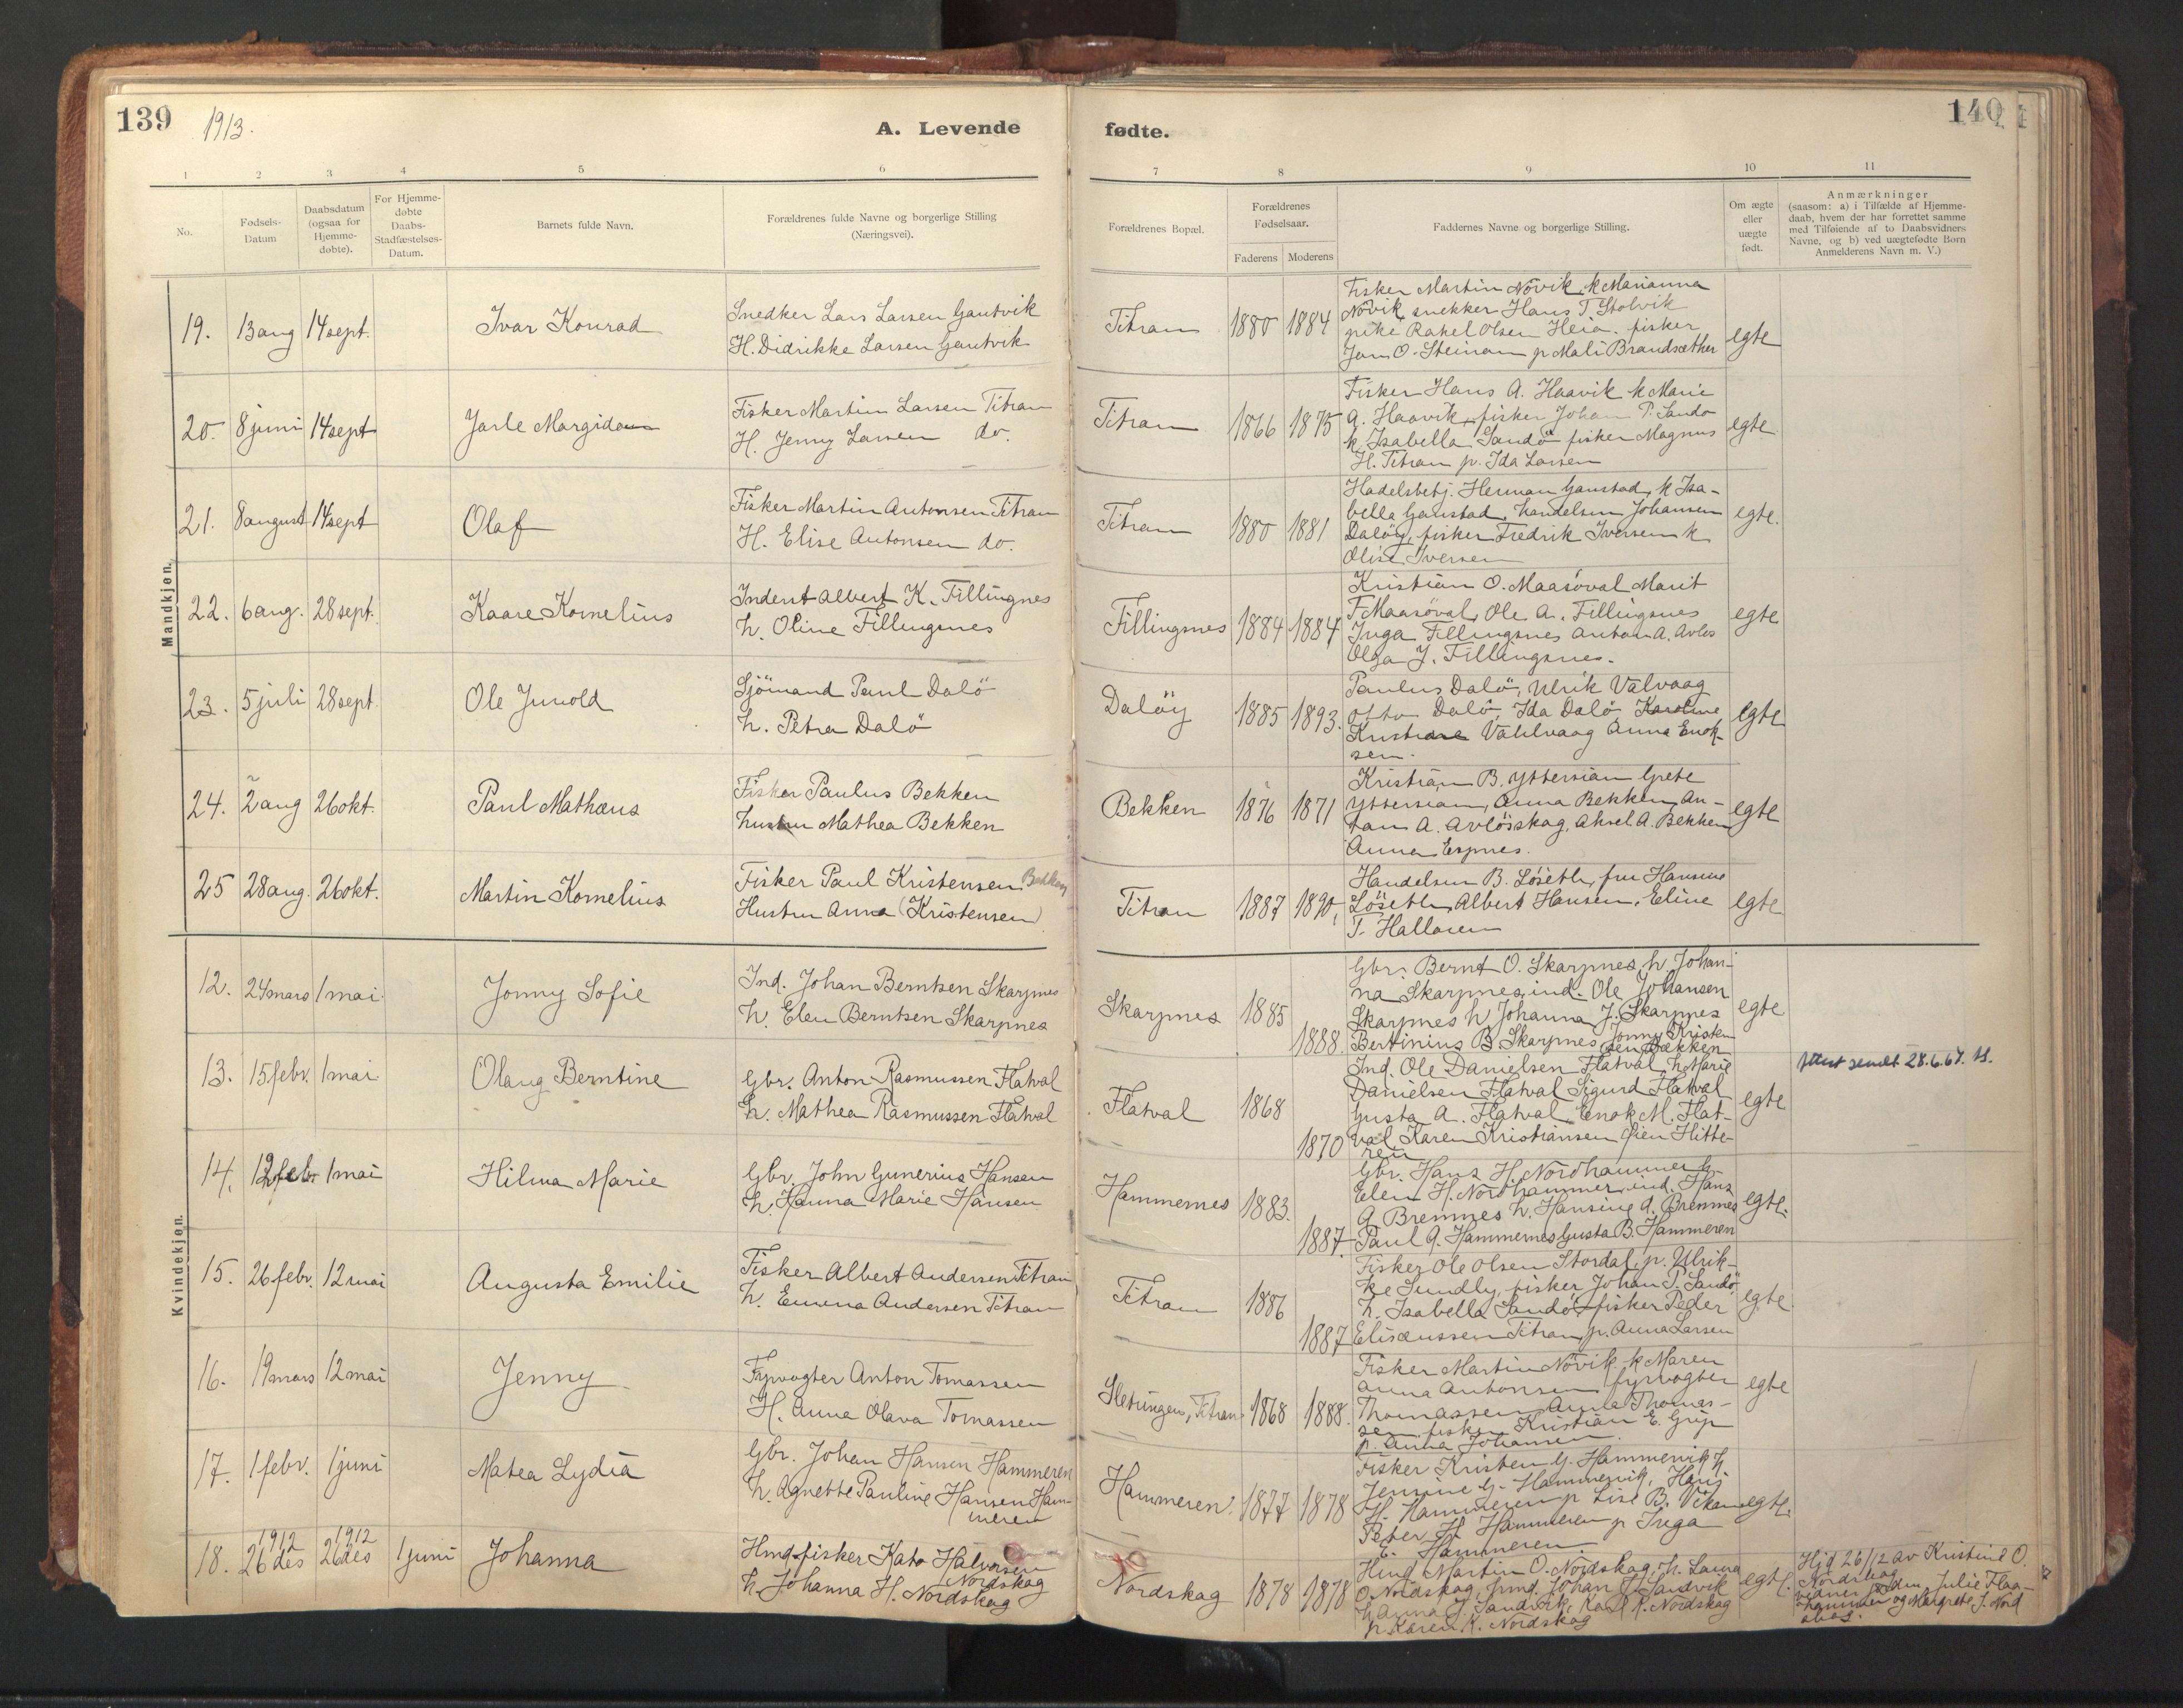 139
1913.
A. Levende
fødte.
140
1
2
3
4
5
6
7
8
9
10
11
No.
Fødsels-
Datum
Daabsdatum
(ogsaa for
Hjemme-
døbte).
For Hjemme-
døbte
Daabs-
Stadfæstelses-
Datum.
Barnets fulde Navn.
Forældrenes fulde Navne og borgerlige Stilling
(Næringsvei).
Forældrenes Bopæl.
Forældrenes
Fødselsaar.
Faderens
Moderens
Faddernes Navne og borgerlige Stilling.
Om ægte
eller
uægte
født.
Anmærkninger
(saasom: a) i Tilfælde af Hjemme-
daab, hvem der har forrettet samme
med Tilføiende af to Daabsvidners
Navne, og b) ved uægtefødte Børn
Anmelderens Navn m. V.)
Mandkjøn.
19.
13 aug
14 sept.
Ivar Konrad
Snedker Lars Larsen Gautvik
H. Didrikke Larsen Gautvik
Titran
1880
1884
Fisker Martin Növik, k Marianna
Növik, snekker Hans T. Stolvik
pike Rakel Olsen Heia. fisker
Jan O. Steinan p Mali Brandsæther
egte
20.
8 juni
14 sept
Jarle Margido
Fisker Martin Larsen Titran
H. Jenny Larsen do.
Titran
1866
1875
Fisker Hans A. Haavik k Marie
A. Haavik, fisker Johan P. Sandö
k Isabella Sandö fisker Magnus
H. Titran p. Ida Larsen
egte
21.
8 august
14 sept
Olaf
Fisker Martin Antonsen Titran
H. Elise Antonsen do.
Titran
1880
1881
Hadelsbetj. Herman Gaustad, k Isa-
bella Gaustad, handelsm Johansen
Dalöy, fisker Fredrik Iversen k
Olise Iversen
egte.
22.
6 aug.
28 sept.
Kaare Kornelius
Inderst Albert K. Fillingnes
h. Oline Fillingsnes
Fillingsnes
1884
1884
Kristian O. Maasöval Marit
T Maasöval, Ole A. Fillingsnes
Inga Fillingsnes Anton A. Avlös
Olga J. Fillingsnes.
egte
23.
5 juli
28 sept.
Ole Junold
Sjömand Paul Dalö
h. Petra Dalö
Dalöy
1885
1893.
Paulus Dalö, Ulrik Valvaag
Otto Dalö, Ida Dalö, Karoline
Kristiane Vahlvaag Anna Enok-
sen.
egte
24.
2 aug
26 okt.
Paul Mathæus
Fisker Paulus Bekken
hustru Mathea Bekken
Bekken
1876
1871
Kristian B. Yttersian Grete
Yttersian, Anna Bekken, An-
ton A. Avlösskag, Aksel A. Bekken
Anna Espnes.
egte
25
28 aug.
26 okt.
Martin Kornelius
Fisker Paul Kristensen Bekken
Hustru Anna (Kristensen)
Titran
1887
1890,
Handelsm B. Löseth, fru Hansine
Löseth, Albert Hansen, Eline
T. Hallaren
egte
Kvindekjøn.
12.
24 mars
1 mai.
Jonny Sofie
Ind. Johan Berntsen Skarpnes
h. Elen Berntsen Skarpnes
Skarpnes
1885
1888.
Gbr. Bernt O. Skarpnes, h. Johan-
na Skarpnes, ind. Ole Johansen
Skarpnes h Johanna J. Skarpnes
Bertinius B Skarpnes Jonny Kristen
sen Bækken
egte
13.
15 febr.
1 mai.
Olaug Berntine
Gbr. Anton Rasmussen Flatval
h. Mathea Rasmussen Flatval
Flatval
1868
1870
Ind. Ole Danielsen Flatval, h. Marie
Danielsen Flatval Sigurd Flatval
Gusta A. Flatval Enok M. Flat-
val Karen Kristiansen Öien Hitte-
ren
egte
Attest sendt 28.6.67.
14.
febr.
1 mai
Hilma Marie
Gbr. John Gunerius Hansen
h. Hanna Marie Hansen
Hammernes
1883.
1887.
Gbr. Hans H. Nordhammer h-
Elen H. Nordhammer, ind. Hans
A Bremnes h. Hansine A. Bremnes
Paul A. Hammernes Gusta B. Hammeren
egte.
15.
26 febr.
12 mai
Augusta Emilie
Fisker Albert Andersen Titran
h. Emma Andersen Titran
Titran
1886
1887
Fisker Ole Olsen Stordal, p. Ulrik-
ke Sundby, fisker Johan P. Sandö,
h. Isabella Sandö, fisker Peder
Elisæussen Titran, p. Anna Larsen
egte
16.
19 mars
12 mai
Jenny
Fyrvogter Anton Tomassen
H. Anna Olava Tomassen
Sletringen, Titran
1868
1888.
Fisker Martin Növik k Maren
Anna Antonsen fyrvogter
Thomassen Anna Thomas-
sen, fisker Kristian E. Grip
p. Anna Johansen.
egte
17.
1 febr.
1 juni
Matea Lydia
Gbr. Johan Hansen Hammeren
h. Agnette Pauline Hansen Ham-
meren
Hammeren.
1877
1878
Fisker Kristen G. Hammervik h
Jensine G. Hammervik, Hans
H. Hammeren p Lise B. Vikan
Peter H Hammeren p Inga
E. Hammeren.
egte.
18.
1912
26 des
1912
26 des
1 juni
Johanna
Hmd. fisker Kato Halvorsen
Nordskag
h. Johanna H. Nordskag
Nordskag
1878
1878
Hmd Martin O. Nordskag, h. Laura
O. Nordskag, hmd. Johan J. Sandvik
h. Anna J. Sandvik, Karl K. Nordskag
p. Karen K. Nordskag
egte.
Hjd 26/12 av Kristine O.
Nordskag
vidner Julie Flaa-
og Margrete J. Nord
skag.